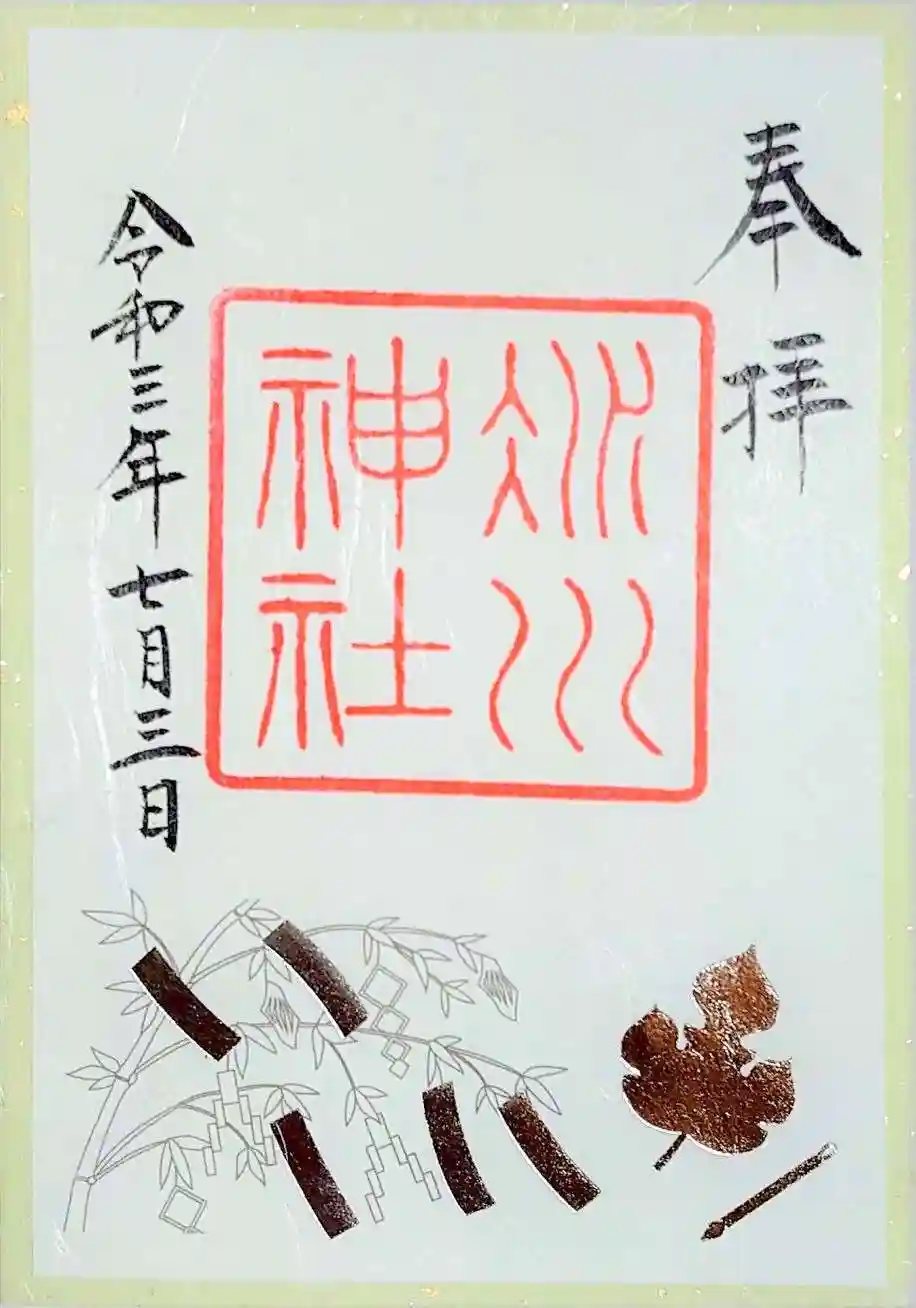 奉拝
冰川
神社
令和三年七月三日